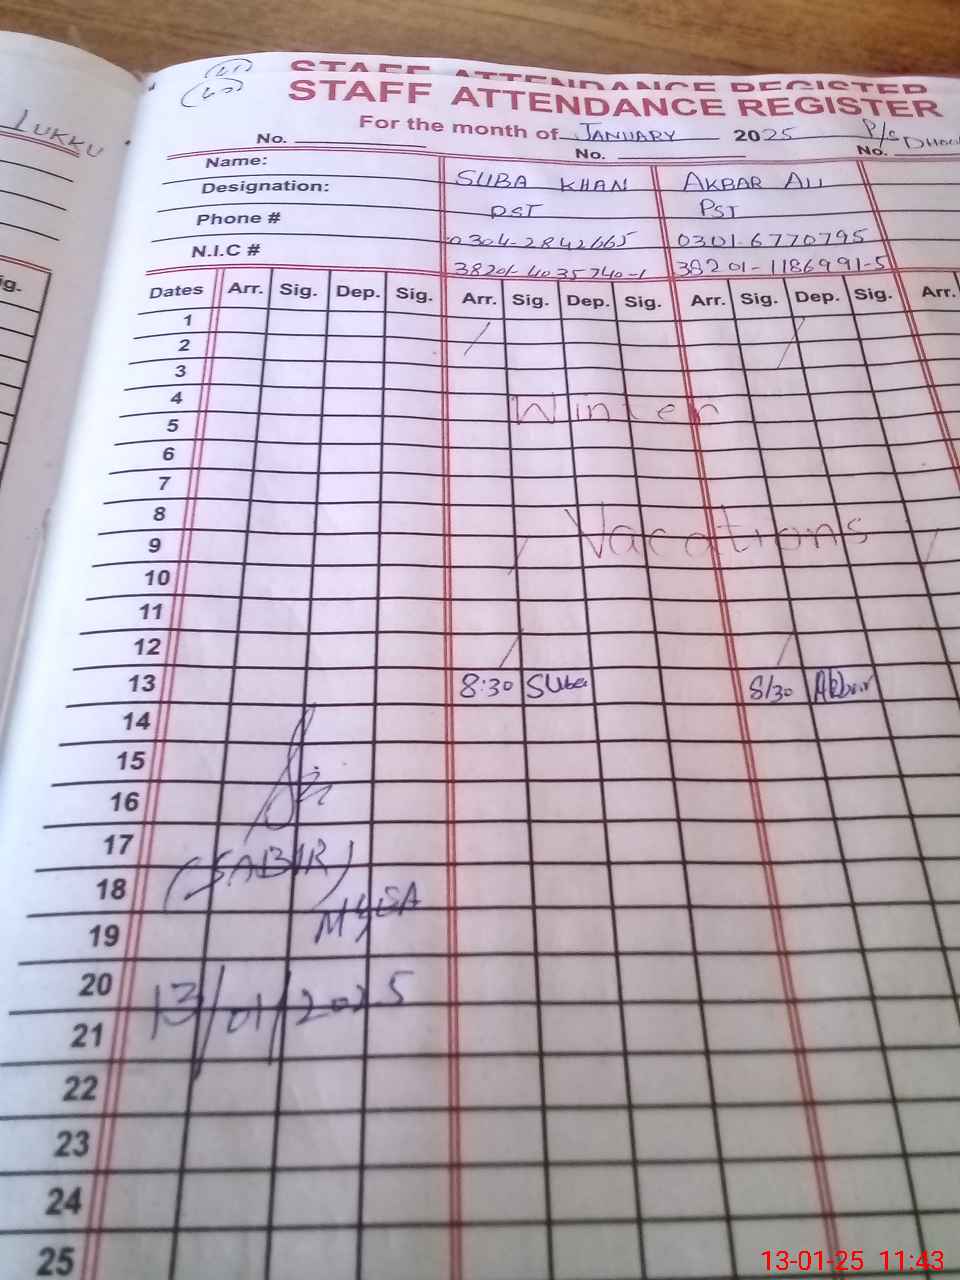 LUKKU
(41)
STAFF ATTENDANCE REGISTER
(40)
STAFF ATTENDANCE REGISTER
For the month of JANUARY 2025 P/S
No. No. No.
Name: SUBA KHAN AKBAR ALI
Designation: PST PST
Phone # 0304-2842665 0301-6770795
N.I.C # 38201-4035740-1 38201-1186991-5
ig.
Dates Arr. Sig. Dep. Sig. Arr. Sig. Dep. Sig. Arr. Sig. Dep. Sig. Arr.
1
2
3
4 Winter
5
6
7
8 Vacations
9
10
11
12
13 8:30 Suba 8/30 Akbar
14
15
16
17 (SABIR)
18
19 MGEA
20 13/01/2025
21
22
23
24
25
13-01-25 11:43